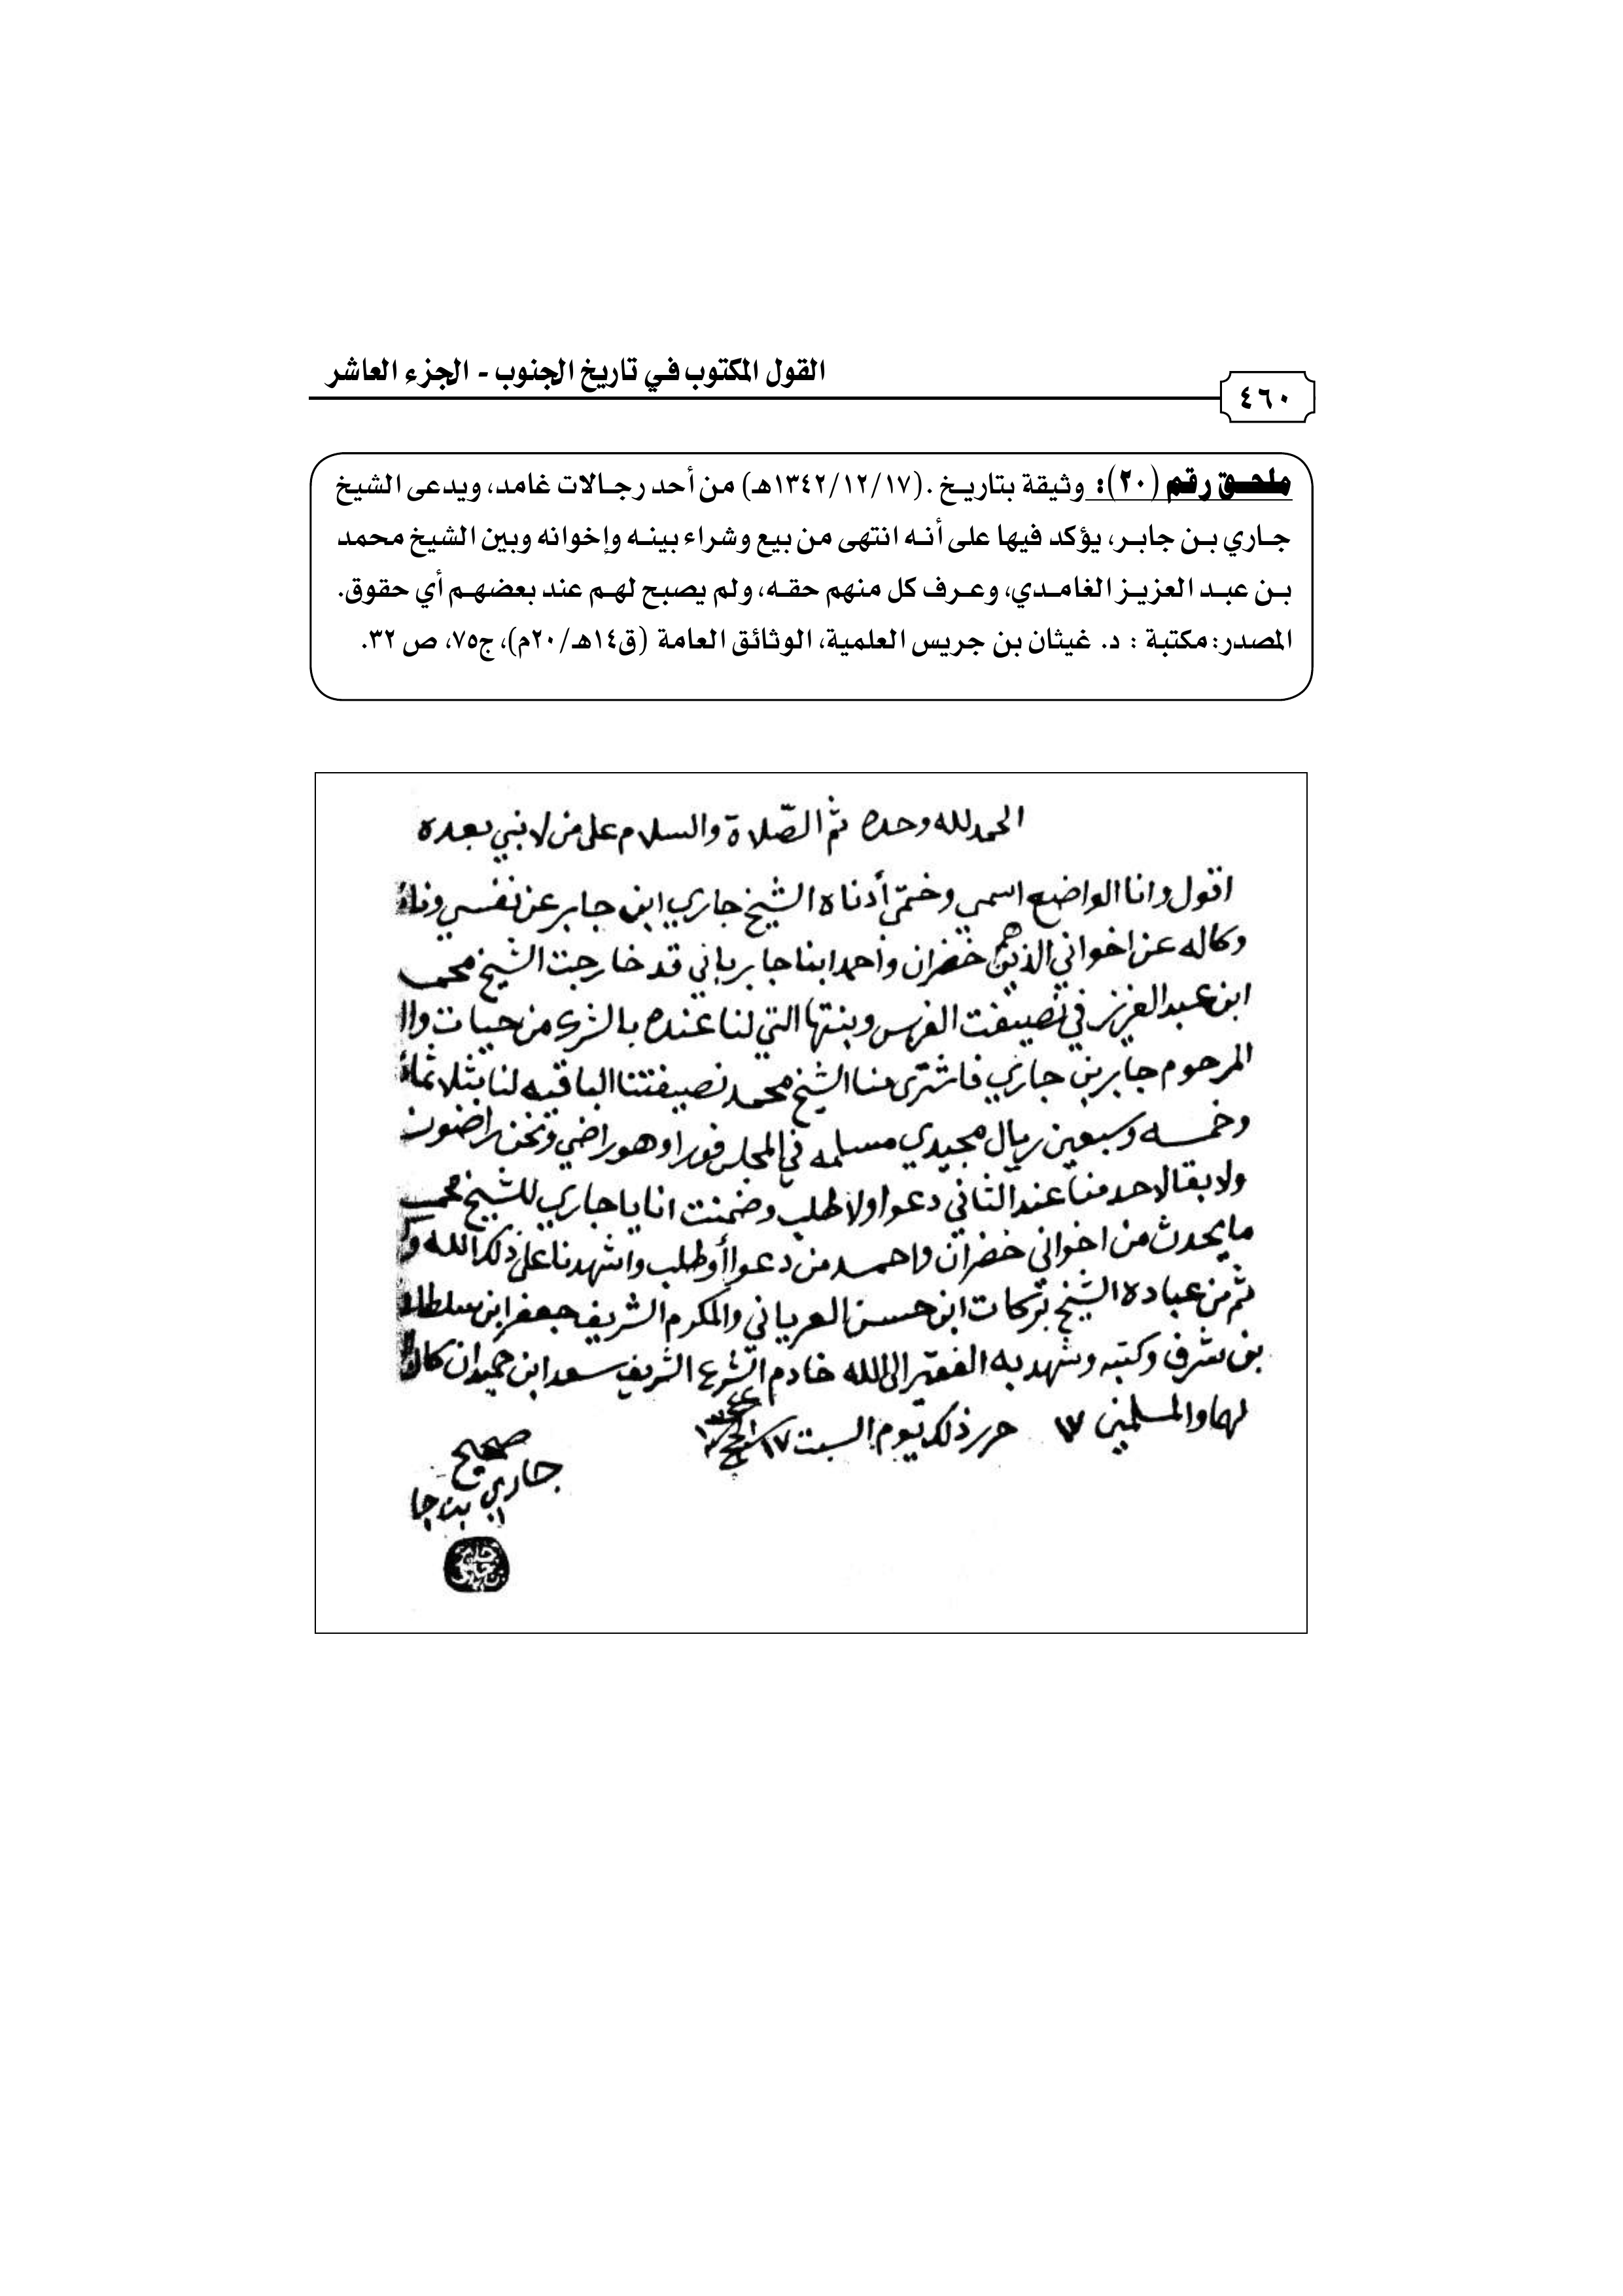 القول المكتوب في تاريخ الجنوب - الجزء العاشر
٤٦٠
ملحق رقم (٢٠): وثيقة بتاريخ .(١٣٤٢/١٢/١٧هـ) من أحد رجالات غامد، ويدعى الشيخ
جاري بن جابر، يؤكد فيها على أنه انتهى من بيع وشراء بينه وإخوانه وبين الشيخ محمد
بن عبد العزيز الغامدي، وعرف كل منهم حقه، ولم يصبح لهم عند بعضهم أي حقوق.
المصدر: مكتبة : د. غيثان بن جريس العلمية، الوثائق العامة (ق١٤هـ/٢٠م)، ج٧٥، ص ٣٢.
الحمد لله وحده ثم الصّلاة والسلام على من لا نبي بعده
اقول وانا الواضع اسمي وختمي أدناه الشيخ جاري ابن جابر عن نفسي
وكاله عن اخواني الذين هم خضران وأحمد ابنا جابر باني قد خارجت الشيخ محمد
ابن عبد العزيز في نصيفت الفرس وبنتها التي لنا عنده بالشرى من حيات
المرحوم جابر بن جاري فاشترى منا الشيخ محمد نصيفتنا الباقيه لنا
وخمسه وسبعين ريال مجيدي مسلمه في المجلس فورا وهو راضي ونحن راضون
ولا بقا لاحد منا عند الثاني دعوا ولا طلب وضمنت انا يا جاري للشيخ محمد
ما يحدث من اخواني خضران واحمد من دعوا أو طلب واشهدنا على ذلك الله
ثم من عباده الشيخ بركات ابن حسن العرياني والمكرم الشريف جعفر ابن سلطان
بن شرف وكتبه وشهد به الفقير الى الله خادم الشرع الشريف سعد ابن حميدان كان الله
لهما والمسلمين حرر ذلك يوم السبت ١٧
صحيح
جاري بن جا